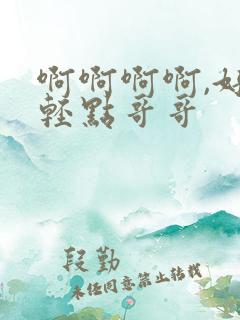 啊啊啊啊,好
轻点哥哥
段勤
未经同意禁止转载